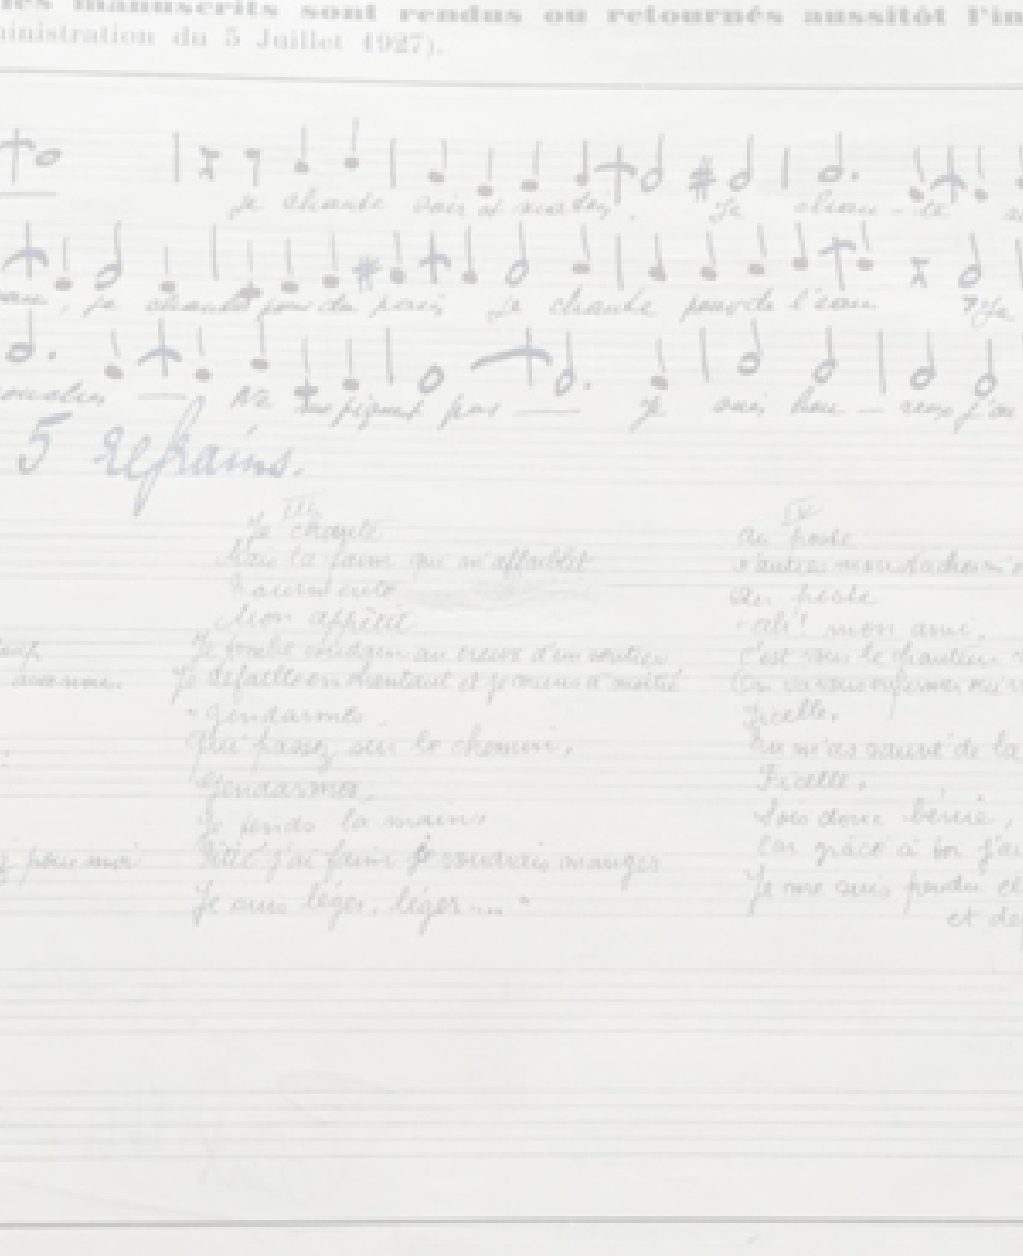 les manuscrits sont rendus ou retournés aussitôt l'in
ministration du 5 Juillet 1927).
Je chante soir et matin. Je chan - te
je chante pour du pain Je chante pour de l'eau Je
Ne me piquent pas — Je suis heu - reux j'ai
5 refrains.
III
Je chante
Mais la faim qui m'affaiblit
Tourmente
Mon appétit
Je tombe soudain au creux d'un sentier
Je défaille en chantant et je meurs à moitié
"Gendarmes,
Qui passez sur le chemin,
Gendarmes,
Je tends la main
Pitié j'ai faim je voudrais manger
Je suis léger, léger .... "
pour moi
IV
Au poste
D'autres moustaches m'
Au poste
"Ah! mon ami,
C'est vous le chanteur
On va vous enfermer
Ficelle,
Tu m'as sauvé de la
Ficelle,
Sois donc bénie,
Car grâce à toi j'ai
Je me suis pendu
et de